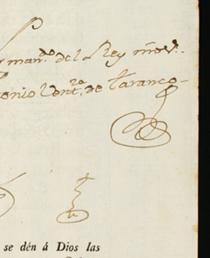 man.ᵈᵒ del Rey nr̃o s.ʳ
onio Vent.ʳᵃ de Taranco
se dén á Dios las